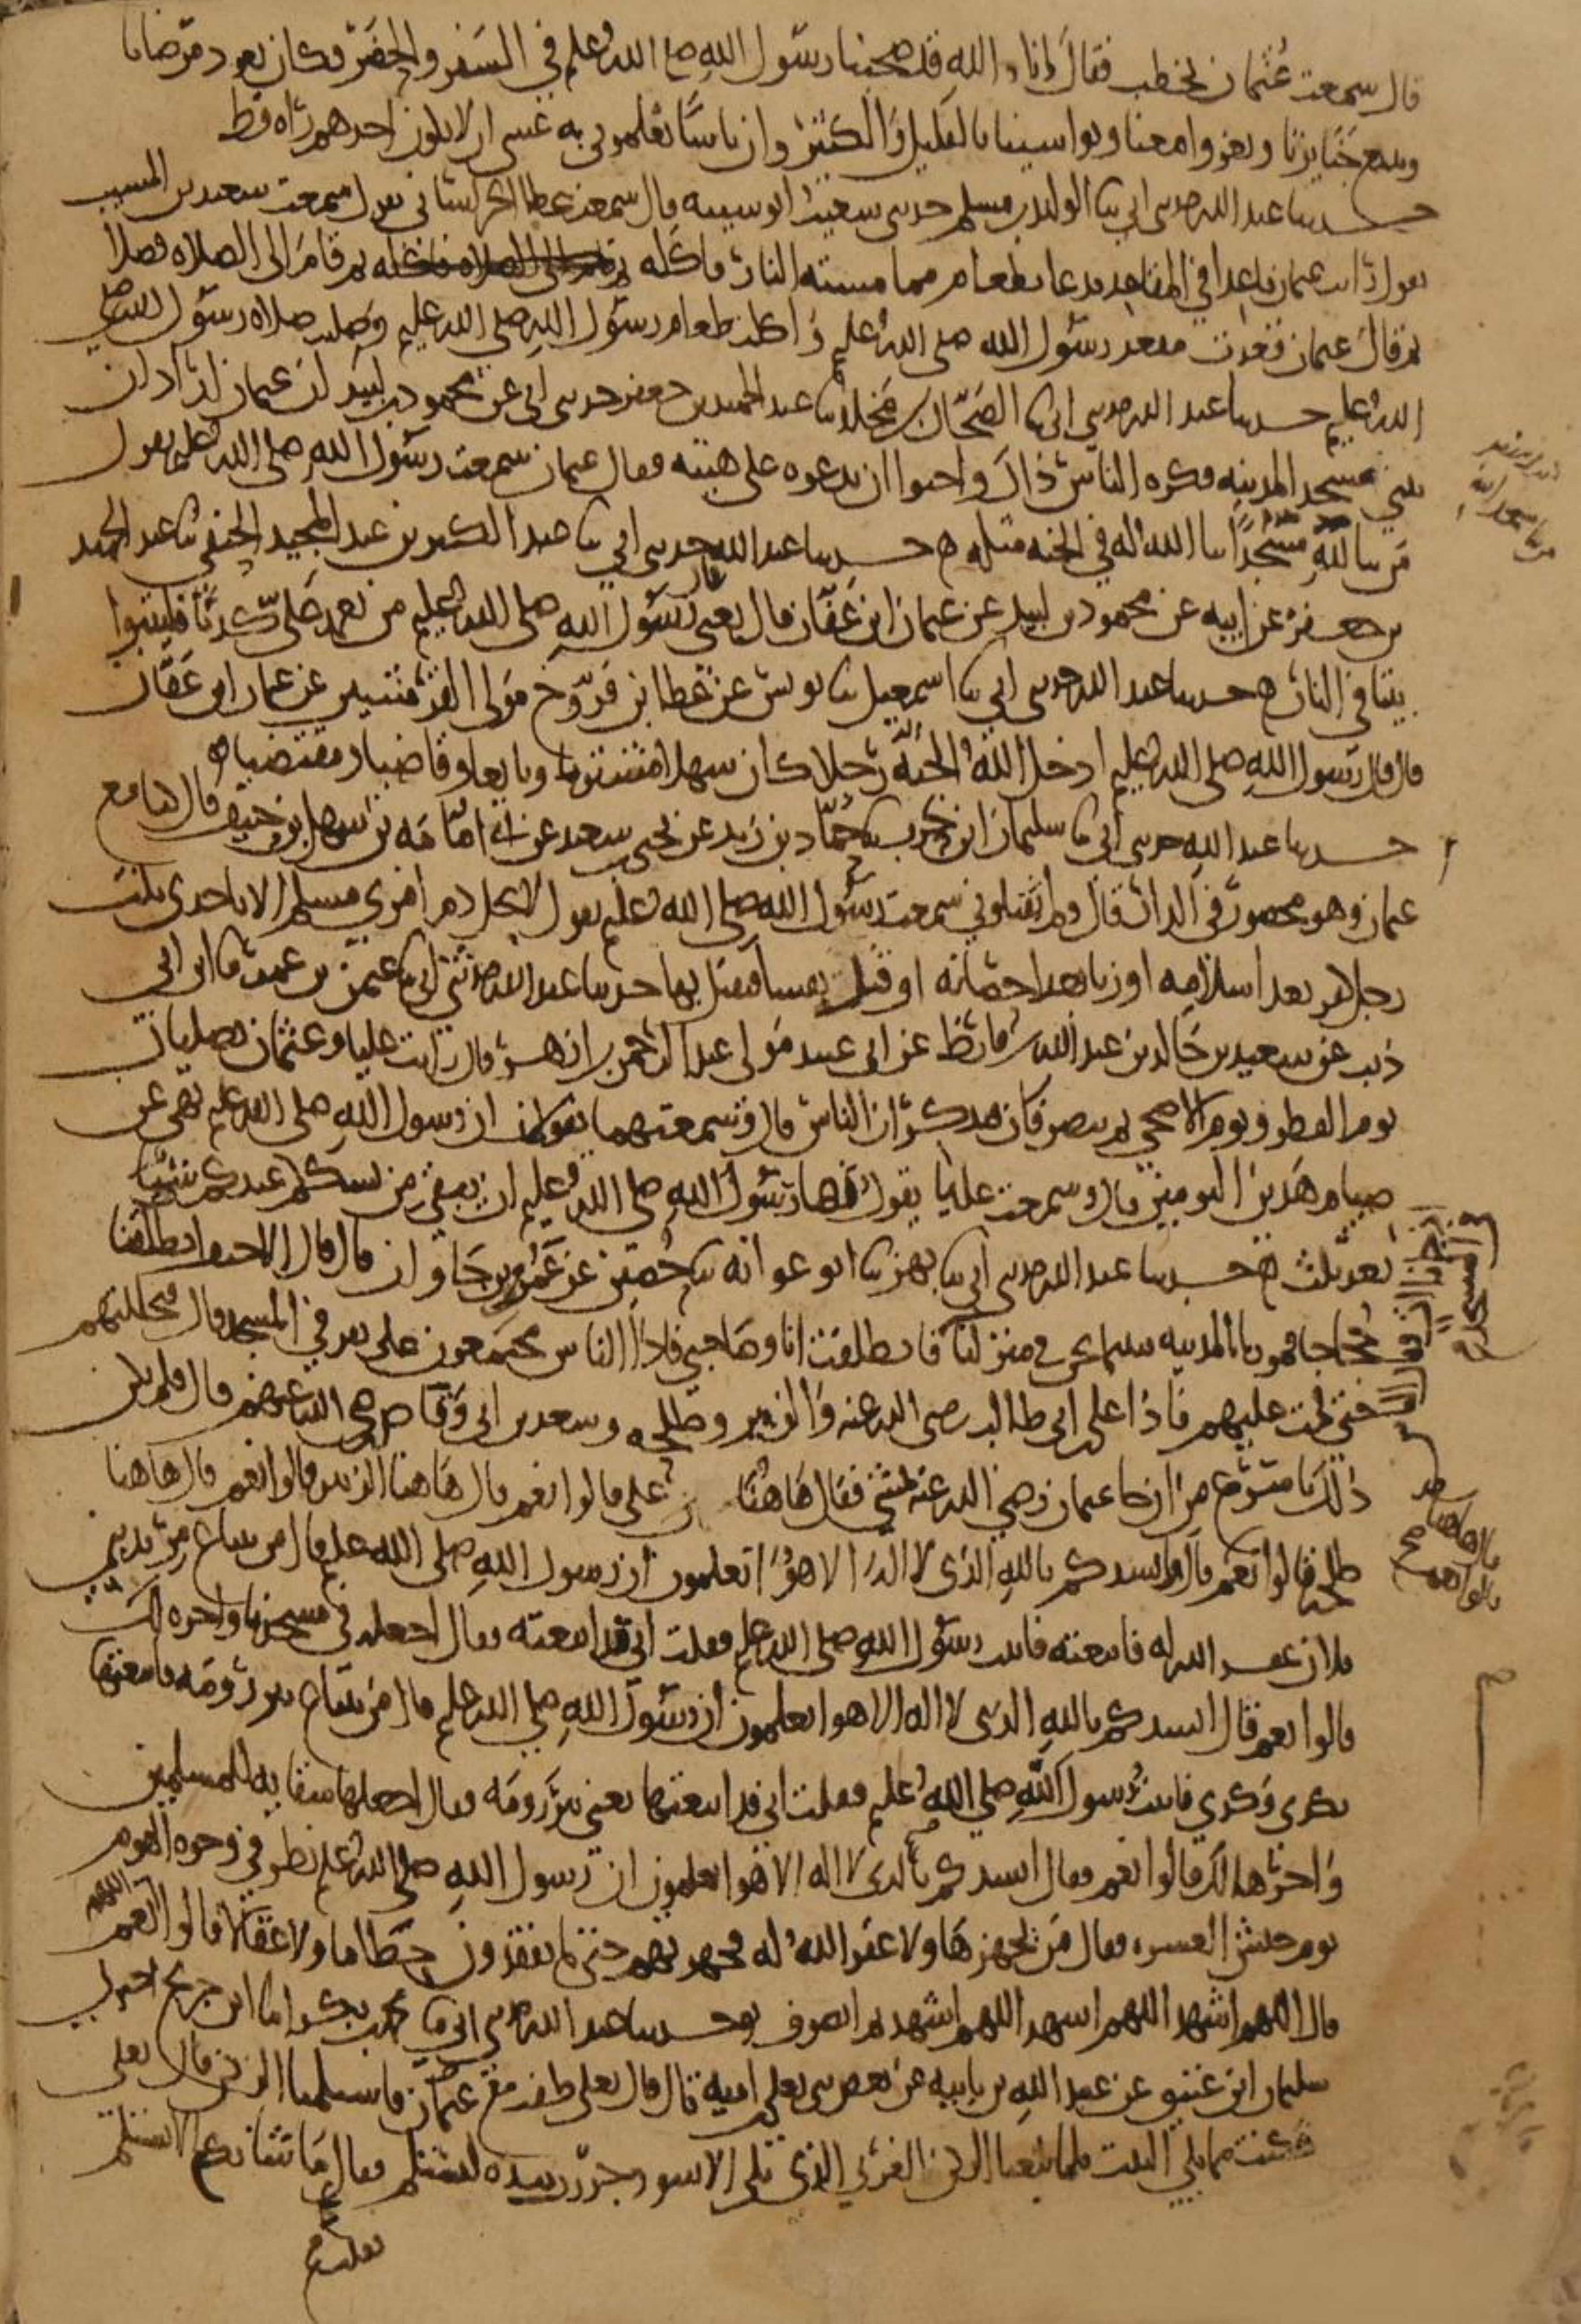 قال سمعت عُثمان يخطب فقال إنا والله قد صحبنا رسول الله صلى الله عليه وسلم في السفر والحضر وكان يعود مرضانا
ويتبع جنايزنا ويغزوا معنا ويواسينا بالقليل والكثير وان ناسًا يعلموني به عسى ان لا يكون احدهم رآه قط
حدثنا عبد الله حدثني ابي ثنا الوليد بن مسلم حدثني سعيد ابو شيبه قال سمعت عطا الخراساني يقول سمعت سعيد بن المسيب
يقول رايت عثمان قاعدا في المقاعد فدعا بطعام مما مسته النار فاكله ثم قام الى الصلاه فصلا
ثم قال عثمان قعدت مقعد رسول الله صلى الله عليه واكلت طعام رسول الله صلى الله عليه وصليت صلاه رسول الله صلى
الله عليه حدثنا عبد الله حدثني ابي ثنا الضحاك بن مخلد ثنا عبد الحميد بن جعفر حدثني ابي عن محمود بن لبيد ان عثمان اراد ان
يبني مسجد المدينه فكره الناس ذاك واحبوا ان يدعوه على هيئته فقال عثمان سمعت رسول الله صلى الله عليه يقول
من بنا لله مسجدًا بنا الله له في الجنه مثله ح حدثنا عبد الله حدثني ابي ثنا عبد الكبير بن عبد المجيد الحنفي ثنا عبد الحميد
بن جعفر عن ابيه عن محمود بن لبيد عن عثمان ابن عفان قال يعني قال رسول الله صلى الله عليه من تعمد علي كذبًا فليتبوا
بيتا في النار ح حدثنا عبد الله حدثني ابي ثنا اسمعيل ثنا يونس عن عطا ابن فروخ مولى القرشيين عن عثمان ابن عفان
قال قال رسول الله صلى الله عليه ادخل الله الجنة رجلا كان سهلا مشتريا وبايعا وقاضيا ومقتضيا
حدثنا عبد الله حدثني ابي ثنا سليمان ابن حرب ثنا حماد بن زيد عن يحيى بن سعيد عن ابي امامه بن سهل بن حنيف قال كنا مع
عثمان وهو محصور في الدار قال ولم تقتلوني سمعت رسول الله صلى الله عليه يقول لا يحل دم امرى مسلم الا باحدى ثلث
رجل كفر بعد اسلامه او زنا بعد احصانه او قتل نفسا فيقتل بها حدثنا عبد الله حدثني ابي ثنا عثمن بن عمر ثنا ابن ابي
ذيب عن سعيد بن خالد بن عبد الله بن قارظ عن ابي عبيد مولى عبد الرحمن بن ازهر قال رايت عليا وعثمان يصليان
يوم الفطر ويوم الاضحى ثم ينصرفان يذكران الناس قال وسمعتهما يقولان ان رسول الله صلى الله عليه نهى عن
صيام هذين اليومين قال وسمعت عليًا يقول نها رسول الله صلى الله عليه ان يبقى من نسككم عندكم شيئًا
بعد ثلث ح حدثنا عبد الله حدثني ابي ثنا بهز ثنا ابو عوانه ثنا حصين عن عمرو بن جاوان قال قال الاحنف انطلقنا
حجاجا فمررنا بالمدينه فبينما نحن في منزلنا فانطلقت انا وصاحبي فاذا الناس مجتمعون على نفر في المسجد قال فتخللتهم
حتى قمت عليهم فاذا علي بن ابي طالب رضي الله عنه والزبير وطلحه وسعد بن ابي وقاص رضي الله عنهم قال فلم يكن
ذلك باسرع من ان جا عثمان رضي الله عنه يمشي فقال هاهنا علي قالوا نعم قال هاهنا الزبير قالوا نعم قال هاهنا
طلحه قالوا نعم قال انشدكم بالله الذي لا اله الا هو اتعلمون ان رسول الله صلى الله عليه قال من يبتاع مربد بني
فلان غفر الله له فابتعته فاتيت رسول الله صلى الله عليه فقلت اني قد ابتعته فقال اجعله في مسجدنا واجره لك
قالوا نعم قال انشدكم بالله الذي لا اله الا هو اتعلمون ان رسول الله صلى الله عليه قال من يبتاع بير رومه فابتعتها
بكذى وكذي فاتيت رسول الله صلى الله عليه فقلت اني قد ابتعتها يعني بير رومه فقال اجعلها سقايه للمسلمين
واجرها لك قالوا نعم فقال انشدكم بالذي لا اله الا هو اتعلمون ان رسول الله صلى الله عليه نظر في وجوه القوم
يوم جيش العسره فقال من يجهز هاولا غفر الله له فجهزتهم حتى ما يفقدون خطاما ولا عقالا قالوا اللهم نعم
قال اللهم اشهد اللهم اشهد اللهم اشهد ثم انصرف حدثنا عبد الله حدثني ابي ثنا محمد بن بكر انا ابن جريج اخبرني
سليمان ابن عتيق عن عبد الله بن بابيه عن بعض بني يعلى بن اميه قال قال يعلى طفت مع عثمان فاستلمنا الركن قال يعلى
فكنت مما يلي البيت فلما بلغنا الركن الغربي الذي يلي الاسود جررت بيده ليستلم فقال ما شانك فقلت الا تستلم